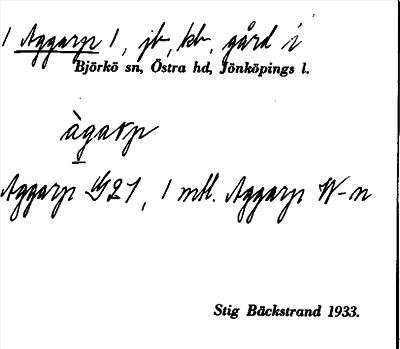 1 Aggarp 1, jb, kb, gård i
Björkö sn, Östra hd, Jönköpings l.
àgarp
Aggarp 1, 1 mtl. Aggarp
Stig Bäckstrand 1933.